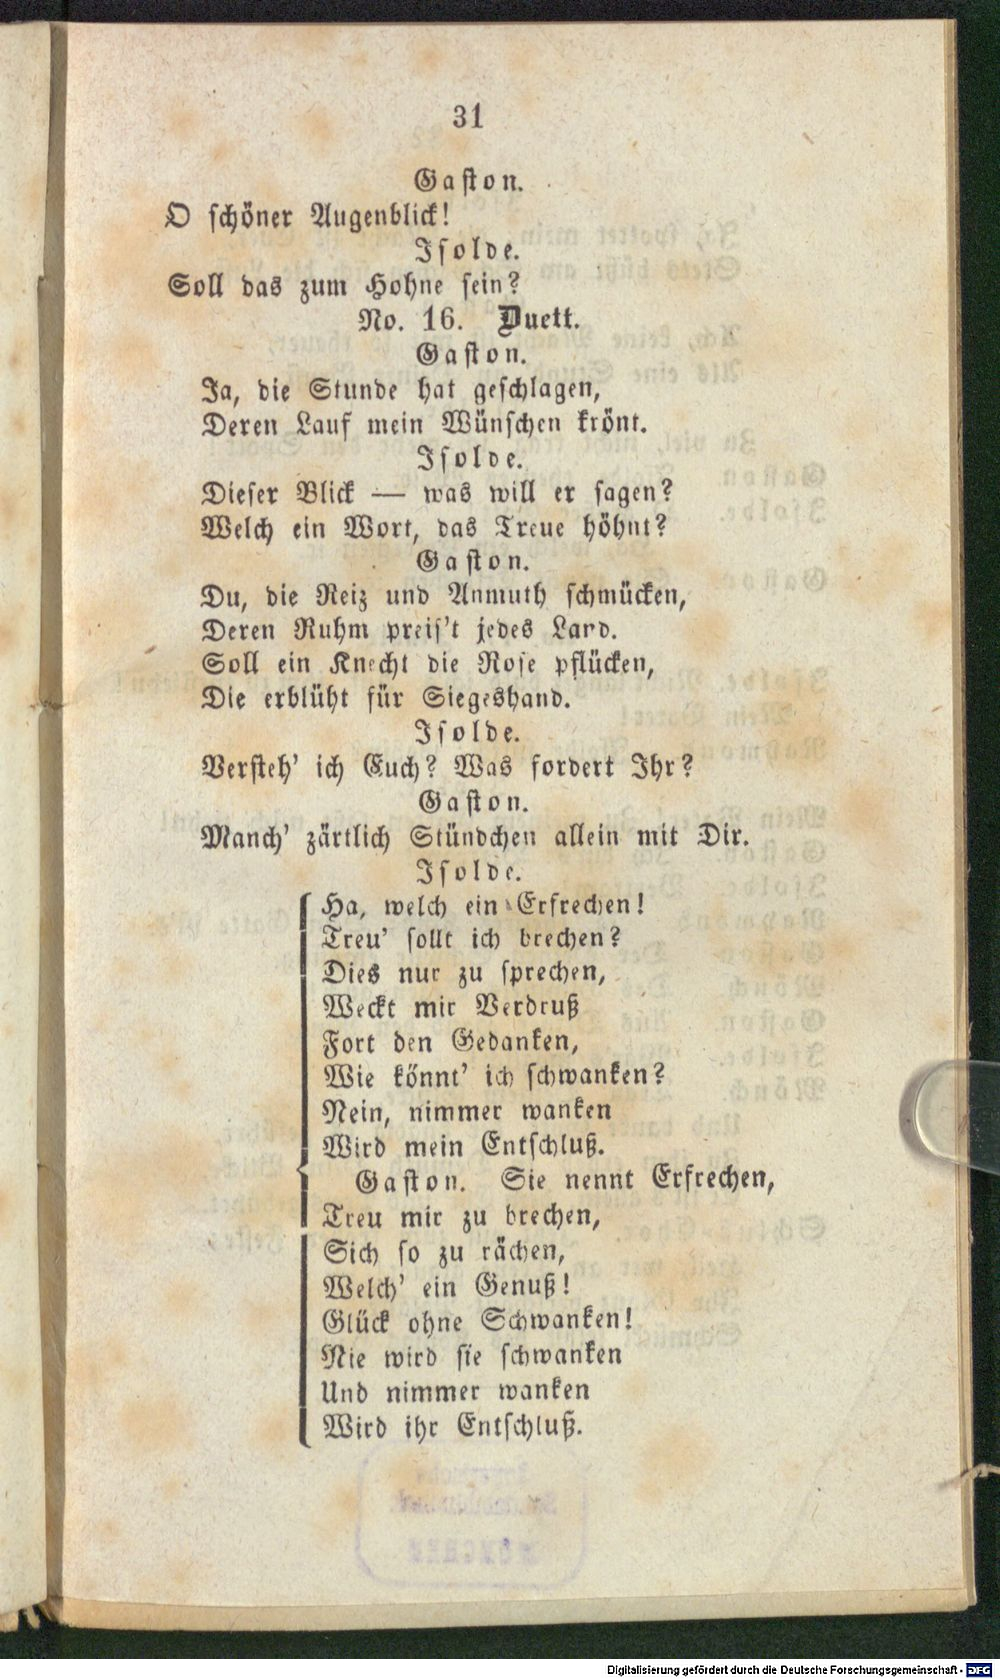 31
Gaston.
O schöner Augenblick!
Isolde.
Soll das zum Hohne sein?
No. 16. Duett.
Gaston.
Ja, die Stunde hat geschlagen,
Deren Lauf mein Wünschen krönt.
Isolde.
Dieser Blick — was will er sagen?
Welch ein Wort, das Treue höhnt?
Gaston.
Du, die Reiz und Anmuth schmücken,
Deren Ruhm preis't jedes Land.
Soll ein Knecht die Rose pflücken,
Die erblüht für Siegeshand.
Isolde.
Versteh' ich Euch? Was fordert Ihr?
Gaston.
Manch' zärtlich Stündchen allein mit Dir.
Isolde.
Ha, welch ein Erfrechen!
Treu' sollt ich brechen?
Dies nur zu sprechen,
Weckt mir Verdruß
Fort den Gedanken,
Wie könnt' ich schwanken?
Nein, nimmer wanken
Wird mein Entschluß.
Gaston. Sie nennt Erfrechen,
Treu mir zu brechen,
Sich so zu rächen,
Welch' ein Genuß!
Glück ohne Schwanken!
Nie wird sie schwanken
Und nimmer wanken
Wird ihr Entschluß.
Digitalisierung gefördert durch die Deutsche Forschungsgemeinschaft - DFG